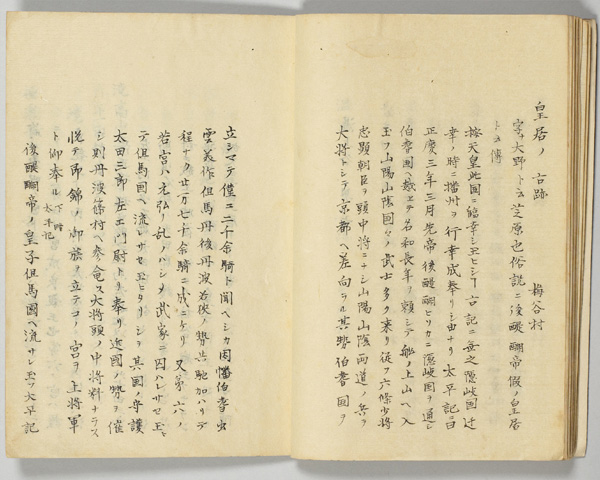 皇居ノ古跡 梅谷村
字大野ト云芝原也俗説ニ後醍醐帝假ノ皇居
ト云傳
按天皇此国ニ臨幸シ玉ヒシヿ古記ニ無之隠岐国迁
幸ノ時ニ播州ヲ行幸成奉リシ由ナリ太平記ニ曰
正慶二年三月先帝後醍醐ヒソカニ隠岐国ヲ遁レ
伯耆国ヘ越エテ名和長年ヲ頼シテ舩ノ上山ヘ入
玉フ山陽山陰国々ノ武士多ク来リ従フ六條少将
忠顕朝臣ヲ頭中将ニナシ山陽山陰両道ノ兵ヲ
大将トシテ京都ヘ差向ラル其勢伯耆国ヲ
立シマテ僅ニ二千余騎ト聞ヘシカ因幡伯耆出
雲美作但馬丹後丹波若狭ノ勢共馳加ハリテ
程ナク廿万七千余騎ニ成ニケリ 又第六ノ
若宮ハ元弘ノ乱ノハシメ武家ニ囚ハレサセ玉ヒ
テ但馬国ヘ流レサセ玉ヒタリシヲ其国ノ守護
太田三郎左エ門尉トリ奉リ近国ノ勢ヲ催
シ則丹波篠村ヘ参會ス大将頭ノ中将斜ナラス
悦テ即錦ノ御旗ヲ立テコノ宮ヲ上将軍
ト仰奉ル 下略
太平記
後醍醐帝ノ皇子但馬國ヘ流サレ玉フ太平記